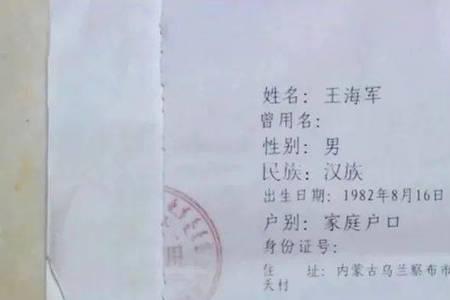 姓名：王海军
曾用名：
性别：男
民族：汉族
出生日期：1982年8月16日
户别：家庭户口
身份证号：
住　址：内蒙古乌兰察布市
天村